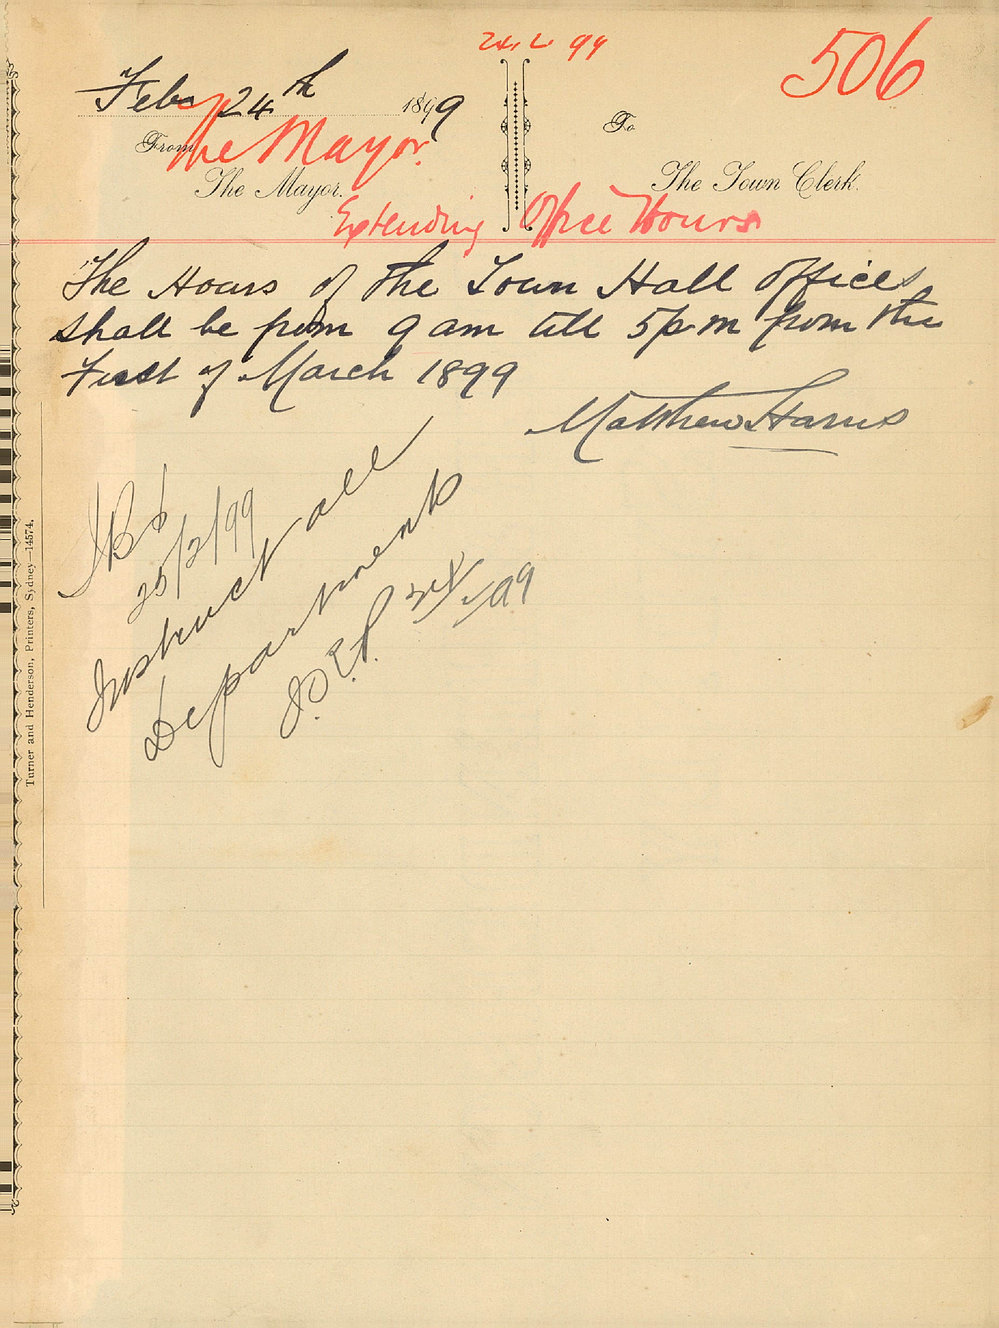 24.2.99
506
Feby 24th 1899
From
The Mayor.
To
The Mayor.
The Town Clerk.
Extending Office Hours
The Hours of the Town Hall offices
shall be from 9 am till 5 pm from the
First of March 1899
Matthew Harris
25/2/99
Instruct all
Departments
Turner and Henderson, Printers, Sydney—14574.